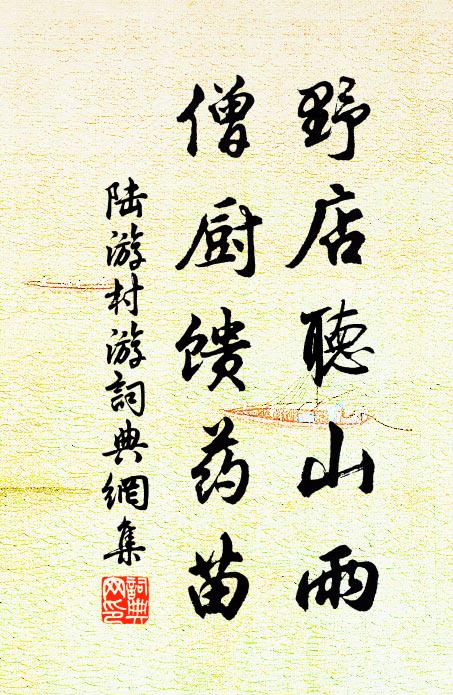 野店聽山雨
僧厨馈药苗
陆游村游詞典網集
詞典网印